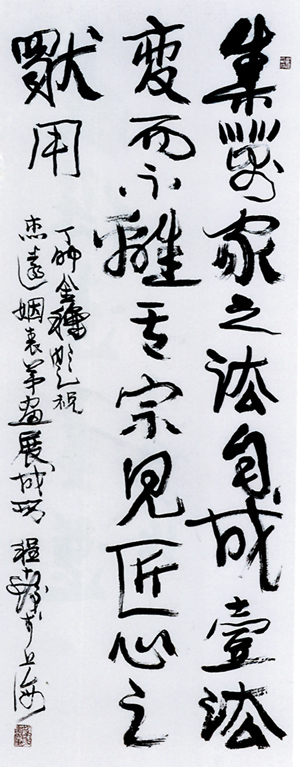 集萬家之法自成壹法
變而不離其宗見匠心之
獨用
丁卯金穐祝
杰遠姻表弟畫展成功 程十髮于上海